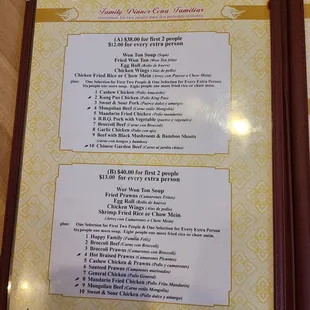 Family Dinner Cena Familiar
(A) $38.00 for first 2 people
$12.00 for every extra person
Won Ton Soup (Sopa)
Fried Won Ton (Won Ton frito)
Egg Roll (Rollo de huevo)
Chicken Wings (Alas de pollo)
Chicken Fried Rice or Chow Mein (Arroz con Puerco o Chow Mein)
plus: One Selection for First Two People & One Selection for Every Extra Person
Six people one more soup. Eight people one more fried rice or chow mein.
1 Cashew Chicken (Pollo Amarillo)
2 Kung Pao Chicken (Pollo King Pao)
3 Sweet & Sour Pork (Puerco dulce y amargo)
4 Mongolian Beef (Carne estilo Mongolia)
5 Mandarin Fried Chicken (Pollo mandarin)
6 B.B.Q. Pork with Vegetable (puerco y vegetales)
7 Broccoli Beef (Carne con Broccoli)
8 Garlic Chicken (Pollo con ajo)
9 Beef with Black Mushroom & Bamboo Shoots
(Carne con hongos y bamboo)
10 Chinese Garden Beef (Carne al jardin chino)
(B) $40.00 for first 2 people
$13.00 for every extra person
Wor Won Ton Soup
Fried Prawns (Camarones Fritos)
Egg Roll (Rollo de huevo)
Chicken Wings (Alas de pollo)
Shrimp Fried Rice or Chow Mein
(Arroz con Camarones o Chowmein)
plus: One Selection for First Two People & One Selection for Every Extra Person
Six people one more soup. Eight people one more fried rice or chow mein.
1 Happy Family (Familia Feliz)
2 Broccoli Beef (Carne con Broccoli)
3 Broccoli Prawns (Camarones con Broccoli)
4 Hot Braised Prawns (Camarones Picantes)
5 Cashew Chicken & Prawns (Pollo y camarones)
6 Sauteed Prawns (Camarones asalteados)
7 General Chicken (Pollo General)
8 Mandarin Fried Chicken (Pollo Frito Mandarin)
9 Mongolian Beef (Carne estilo Mongolia)
10 Sweet & Sour Chicken (Pollo dulce y amargo)